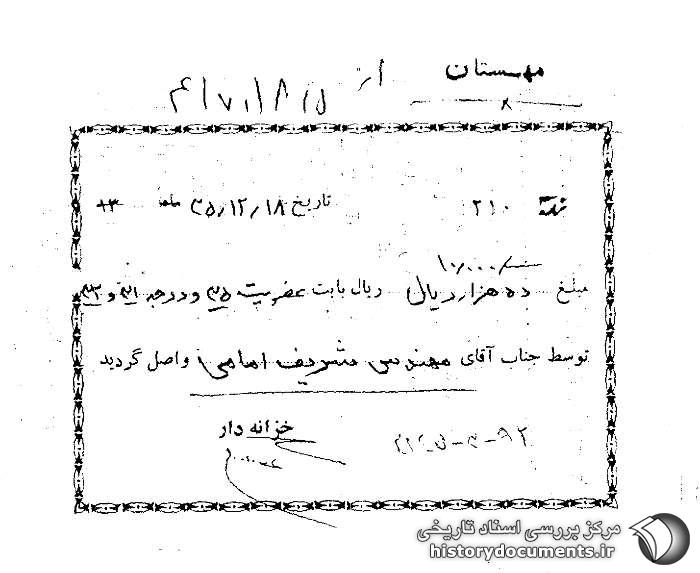 مهستان
از ۴/۷/۱۸/۵
۲۱۰ تاریخ ۳۵/۱۲/۱۸
۱۰/۰۰۰
مبلغ ده هزار ریال ریال بابت عضویت ۳۵ و درجه ۳۱ و ۳۲
توسط جناب آقای مهندس شریف امامی واصل گردید
خزانه دار
مرکز بررسی اسناد تاریخی
historydocuments.ir